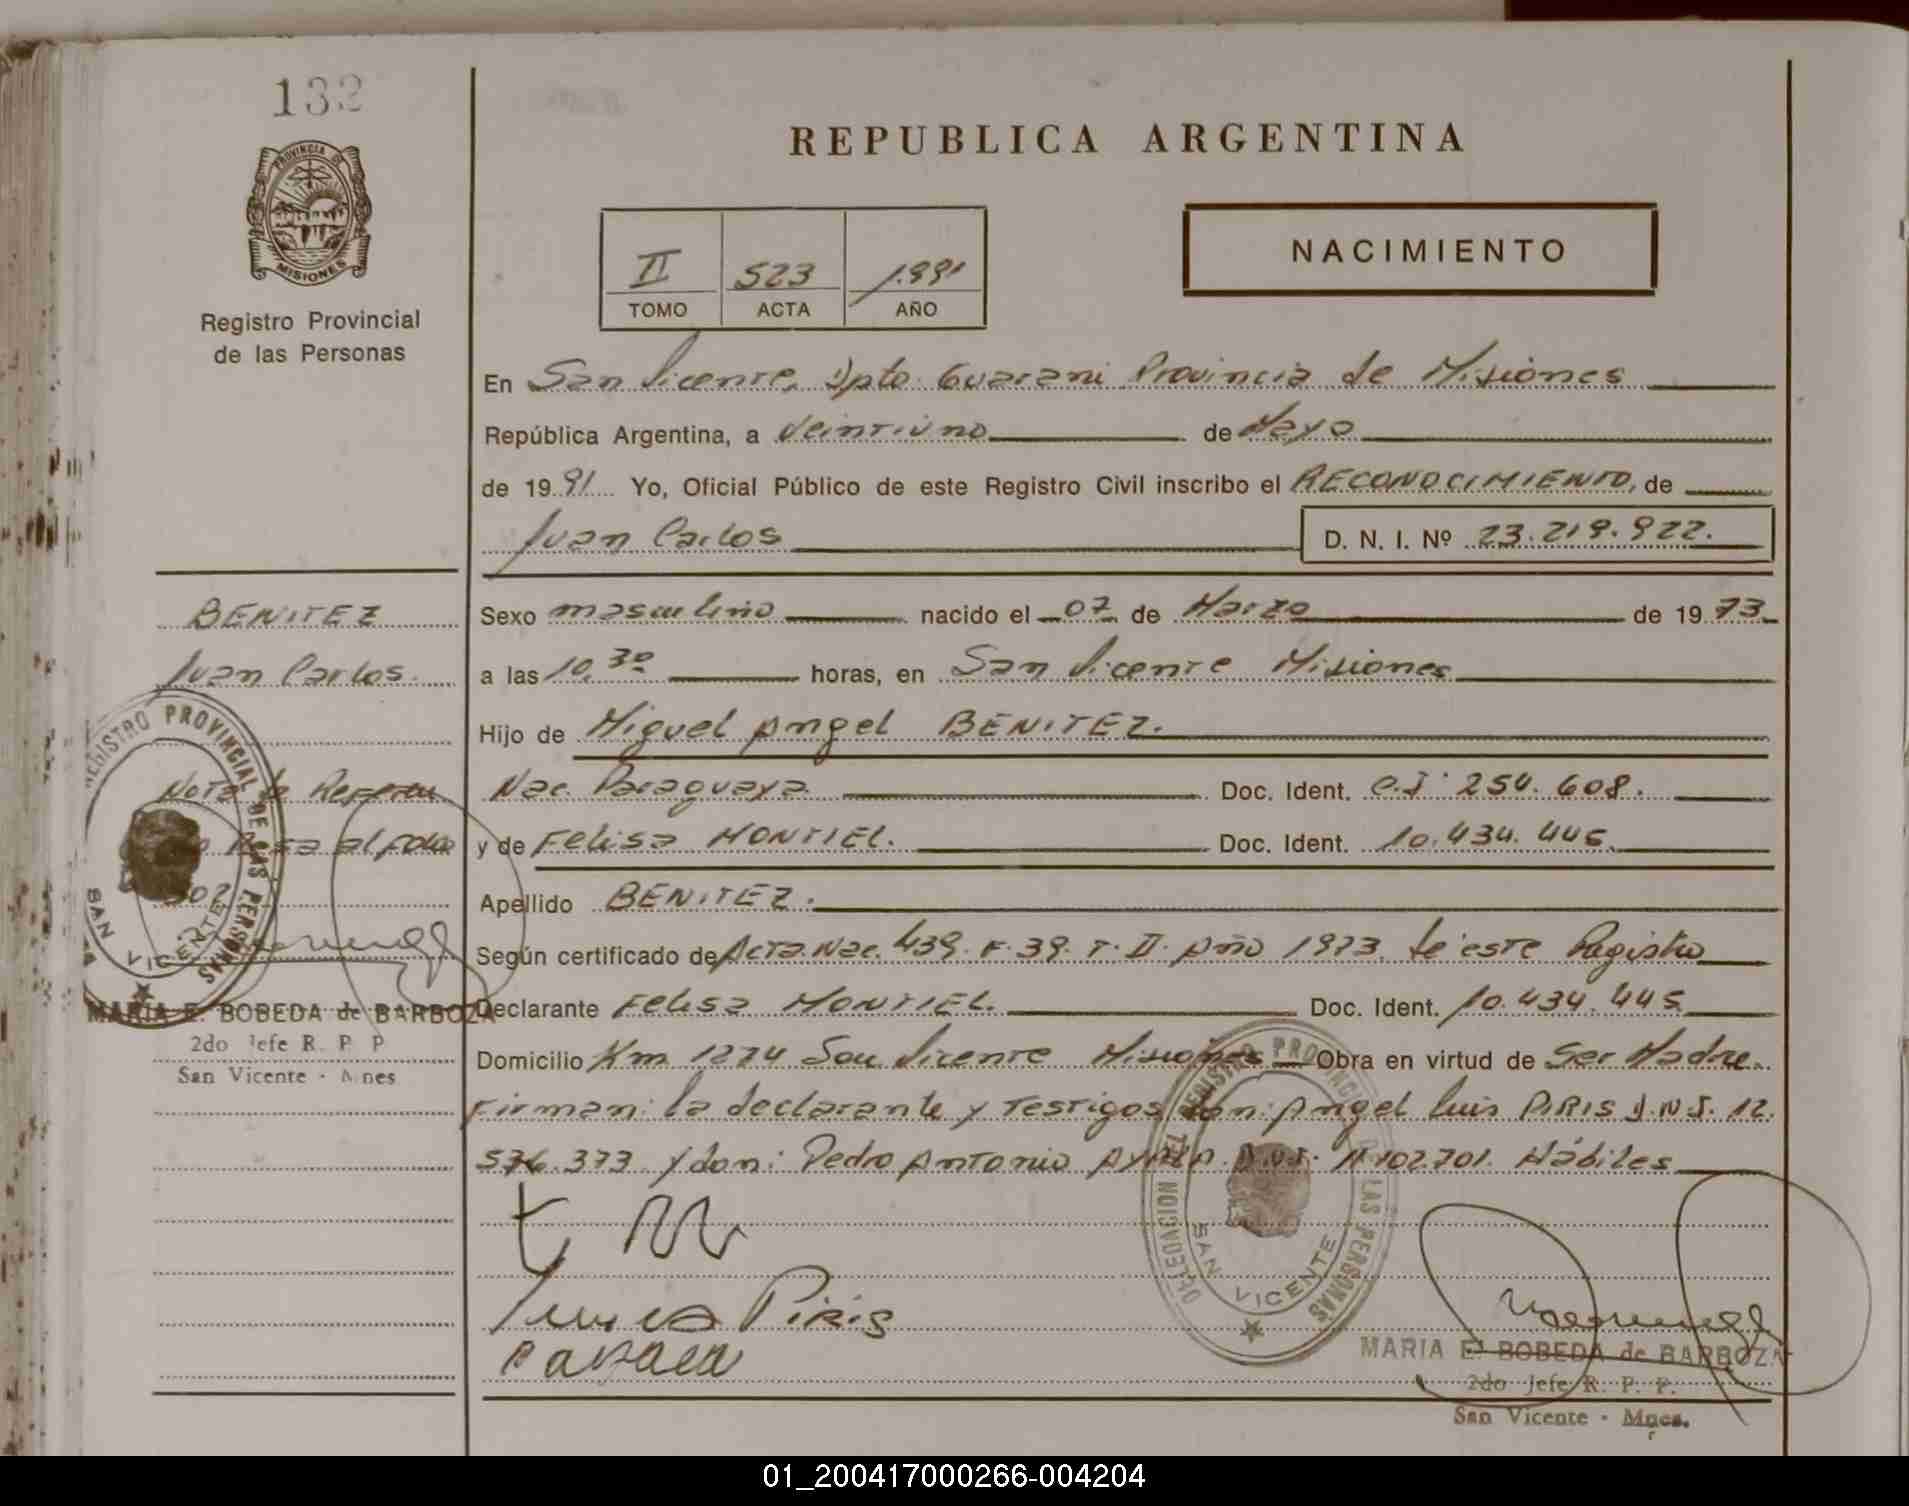 132
PROVINCIA DE
MISIONES
Registro Provincial
de las Personas
REPUBLICA ARGENTINA
II 523 1.991
TOMO ACTA AÑO
NACIMIENTO
En San Vicente, Dpto Guarani Provincia de Misiones
República Argentina, a Veintiuno de Mayo
de 1991 Yo, Oficial Público de este Registro Civil inscribo el RECONOCIMIENTO, de
Juan Carlos D. N. I. Nº 23.219.922.
Sexo masculino nacido el 07 de Marzo de 1973
a las 10,30 horas, en San Vicente Misiones
Hijo de Miguel Angel BENITEZ.
Nac. Paraguaya Doc. Ident. C.I. 254.608.
y de Felisa MONTIEL. Doc. Ident. 10.434.445.
Apellido BENITEZ.
Según certificado de Acta.Nac. 439. F. 39. T. II. Año 1973. de este Registro
Declarante Felisa MONTIEL. Doc. Ident. 10.434.445
Domicilio Km 1274 San Vicente Misiones Obra en virtud de Ser Madre.
Firman: la declarante y Testigos don: Angel Luis PIRIS D.N.I. 12.
576.373 y don: Pedro Antonio AYALA D.N.I. 11.102.701. Hábiles
Piris
BENITEZ
Juan Carlos.
Nota de
al folio
REGISTRO PROVINCIAL DE LAS PERSONAS
SAN VICENTE
MARIA E. BOBEDA de BARBOZA
2do Jefe R. P. P
San Vicente - Mnes
DELEGACION REGISTRO PROVINCIAL DE LAS PERSONAS
SAN VICENTE
MARIA E. BOBEDA de BARBOZA
2do Jefe R. P. P.
San Vicente - Mnes.
01_200417000266-004204